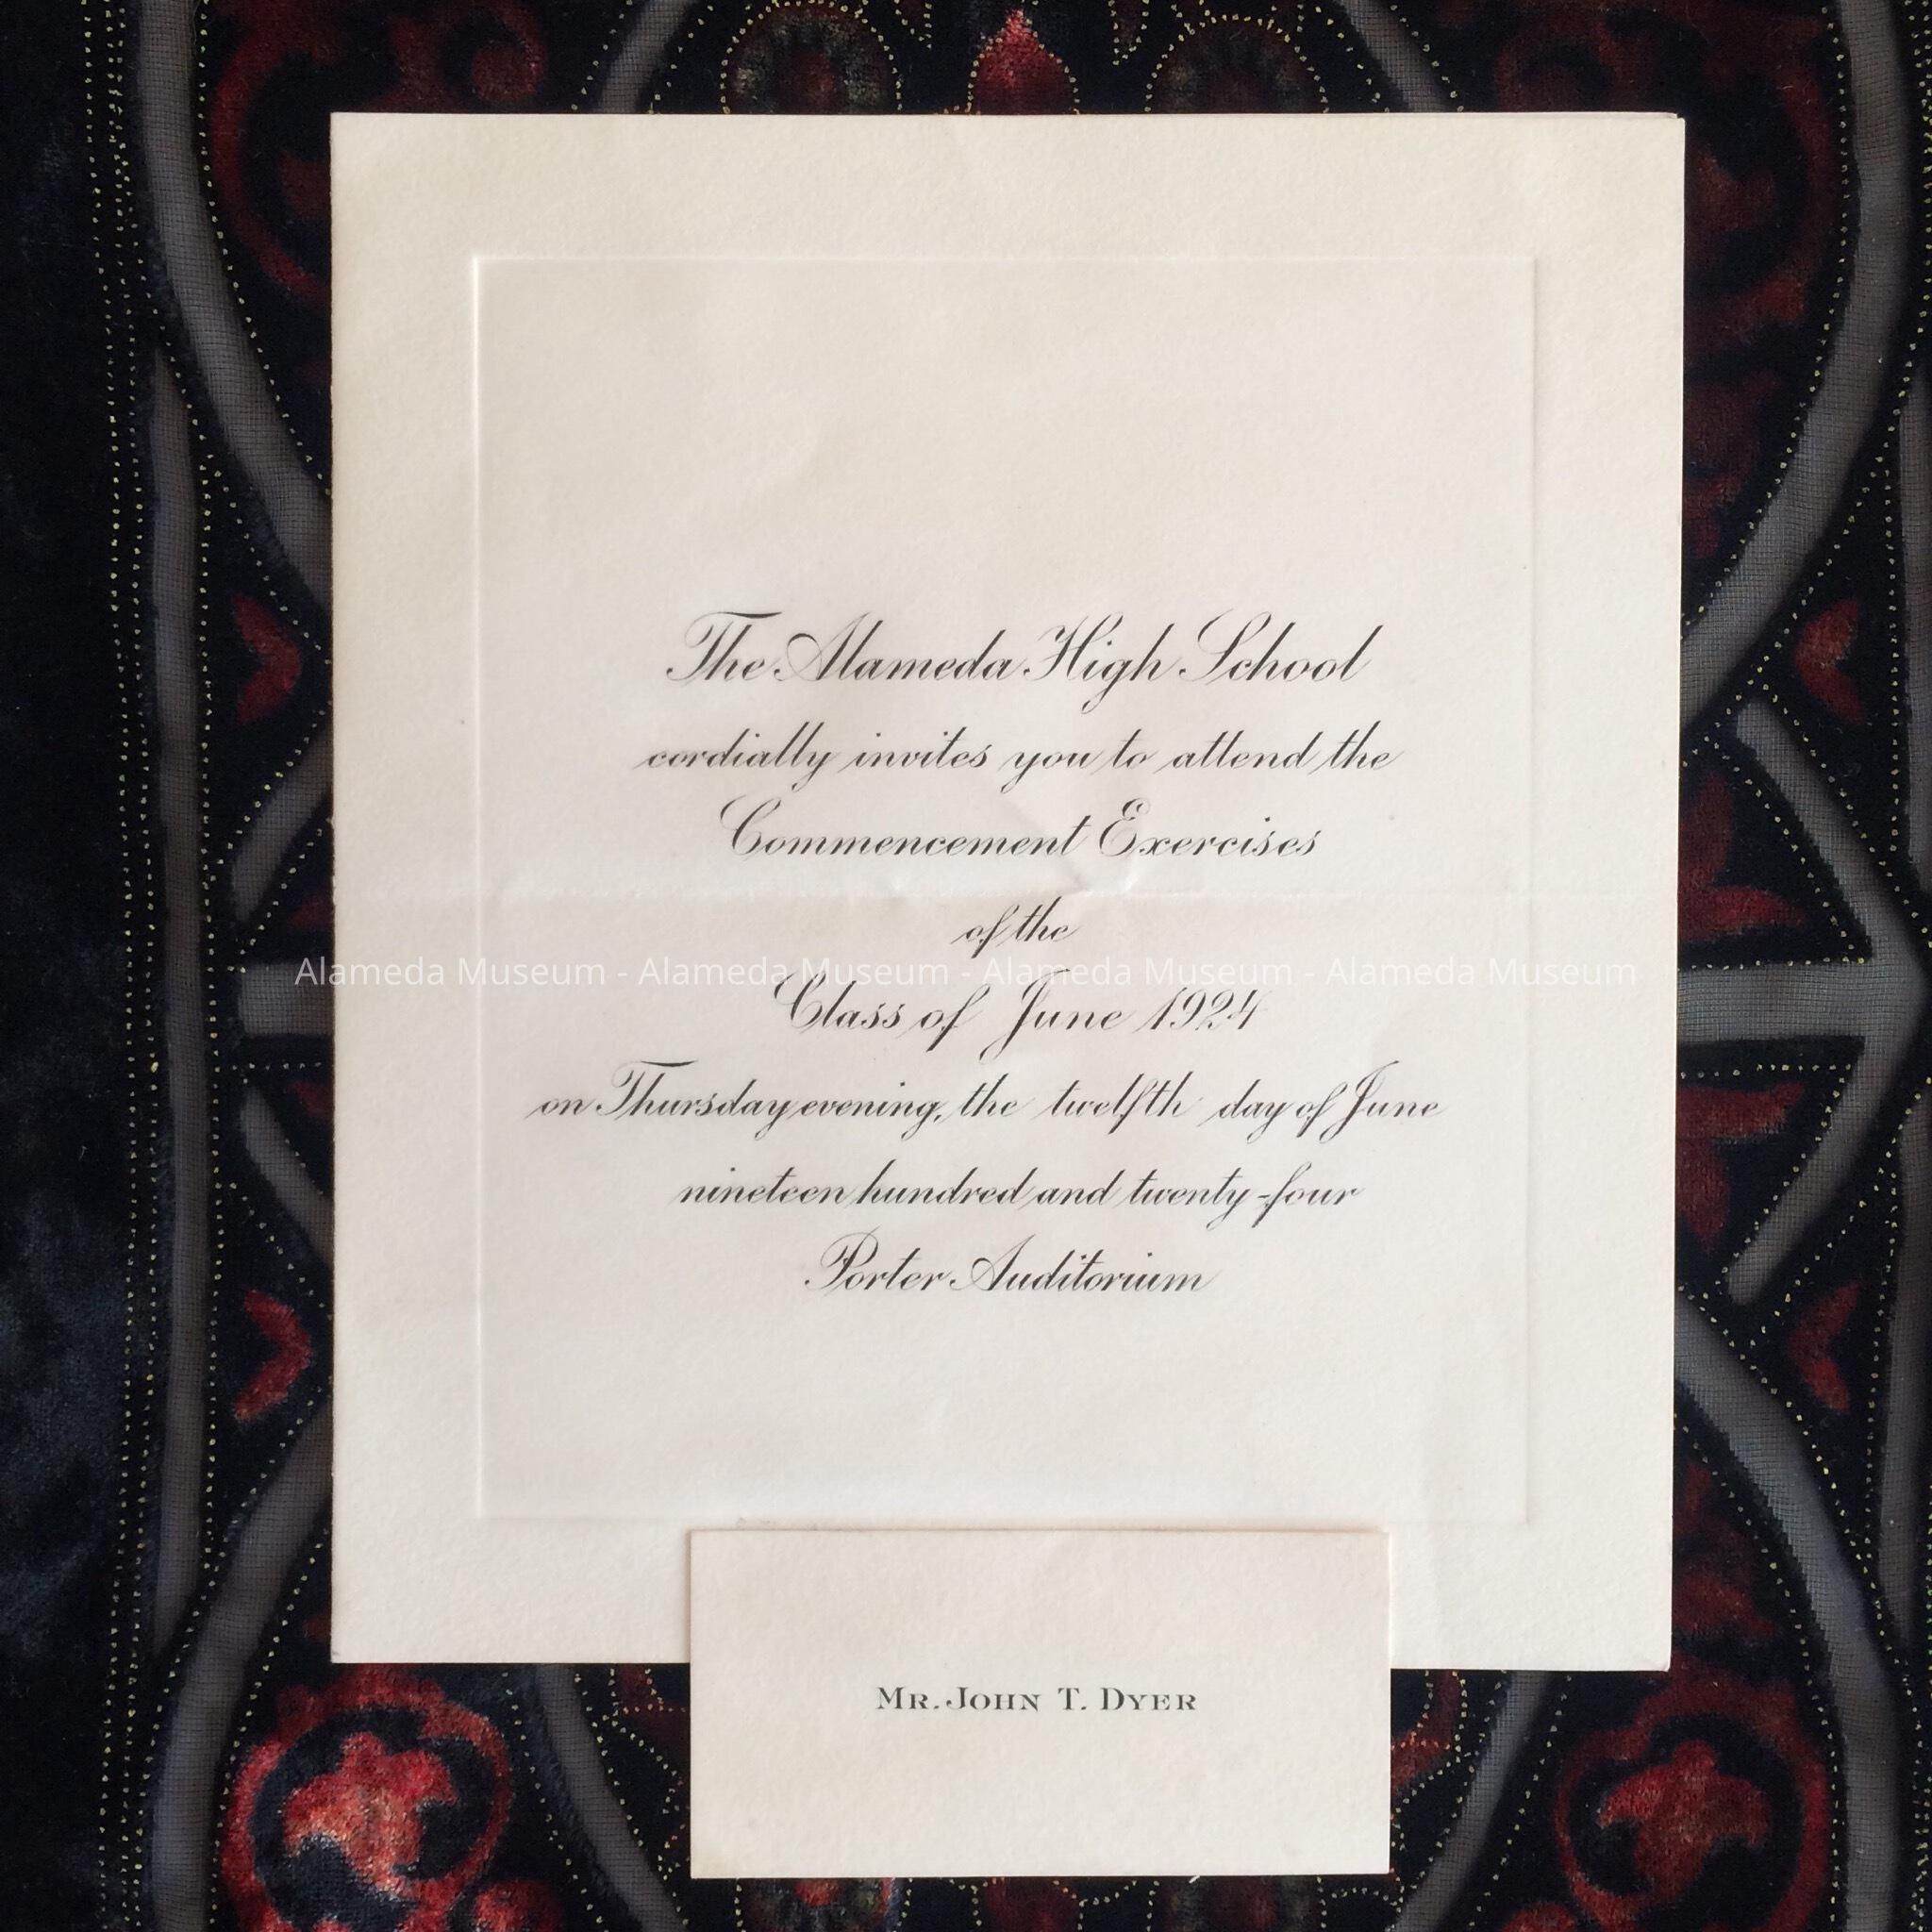 The Alameda High School
cordially invites you to attend the
Commencement Exercises
of the
Alameda Museum - Alameda Museum - Alameda Museum - Alameda Museum
Class of June 1924
on Thursday evening, the twelfth day of June
nineteen hundred and twenty-four
Porter Auditorium
Mr. John T. Dyer